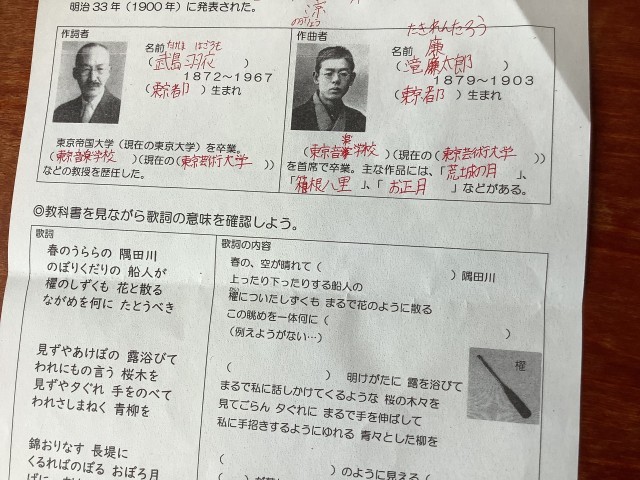 明治33年（1900年）に発表された。
涼
作詞者
名前 たけしま はごろも
（武島 羽衣）
1872～1967
（東京都）生まれ
東京帝国大学（現在の東京大学）を卒業。
（東京音楽学校）（現在の（東京芸術大学））
などの教授を歴任した。
作曲者
たきれんたろう
名前 廉
（滝 廉太郎）
1879～1903
（東京都）生まれ
楽
（東京音楽学校）（現在の（東京芸術大学））
を首席で卒業。主な作品には、「荒城の月」、
「箱根八里」、「お正月」などがある。
◎教科書を見ながら歌詞の意味を確認しよう。
歌詞
春のうららの 隅田川
のぼりくだりの 船人が
櫂のしずくも 花と散る
ながめを何に たとうべき
見ずやあけぼの 露浴びて
われにもの言う 桜木を
見ずや夕ぐれ 手をのべて
われさしまねく 青柳を
錦おりなす 長堤に
くるればのぼる おぼろ月
歌詞の内容
春の、空が晴れて（ ）隅田川
上ったり下ったりする船人の
櫂についたしずくも まるで花のように散る
この眺めを一体何に（ ）
（例えようがない…）
櫂
（ ）明けがたに 露を浴びて
まるで私に話しかけてくるような 桜の木々を
見てごらん 夕ぐれに まるで手を伸ばして
私に手招きするようにゆれる 青々とした柳を
（ ）のように見える（